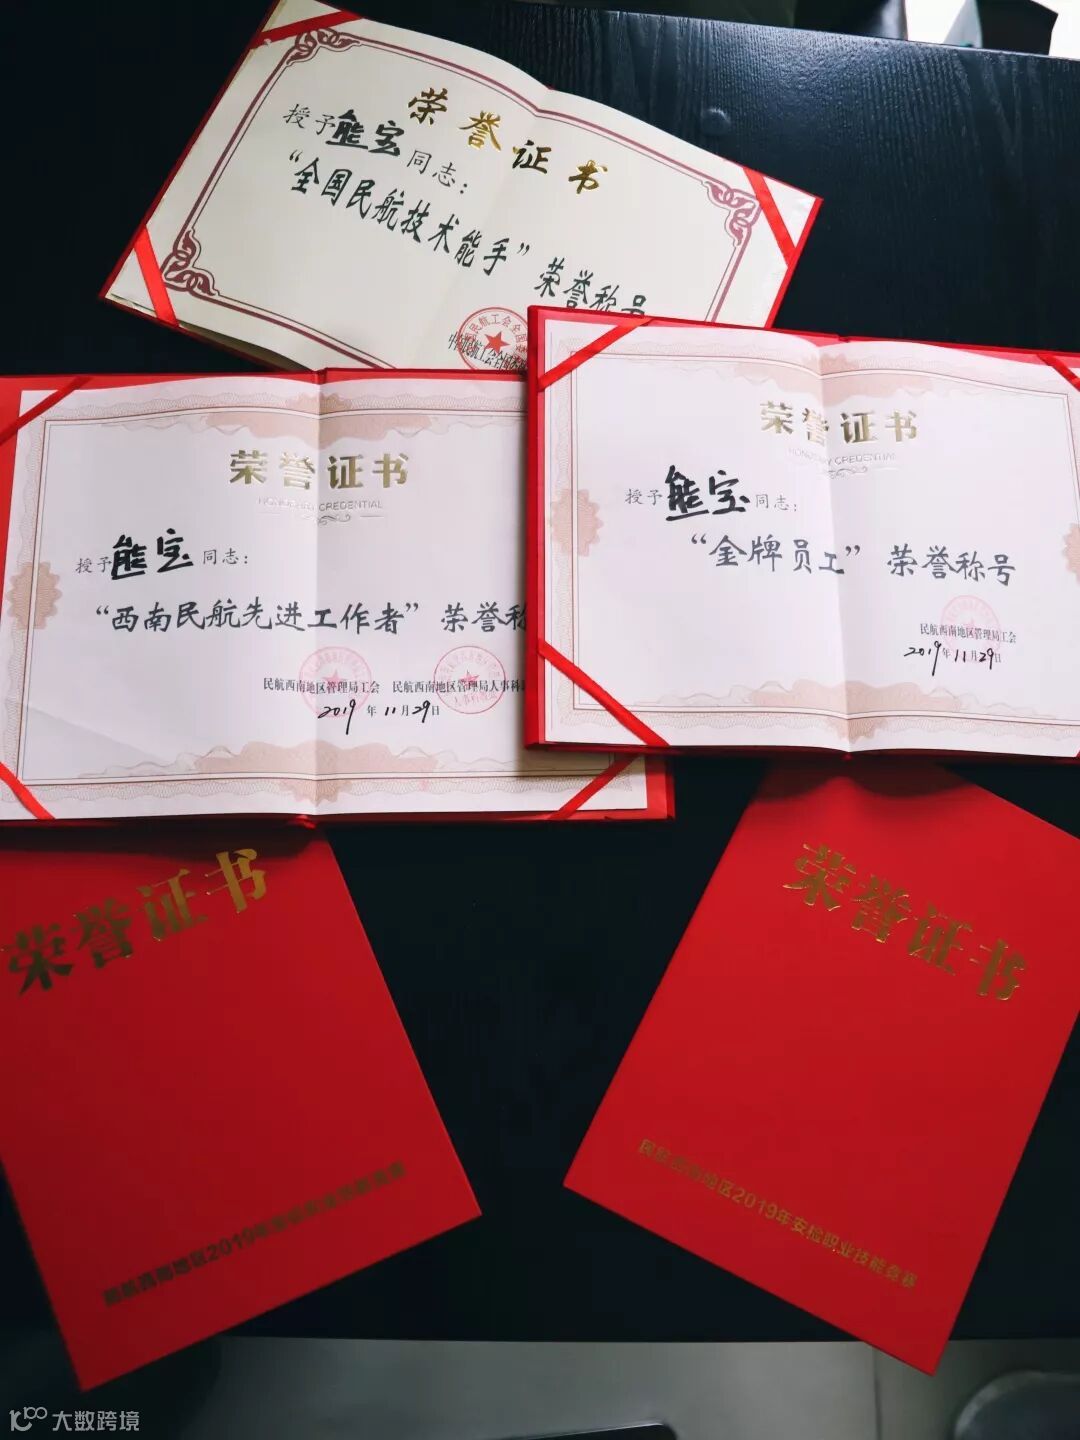 荣誉证书
授予熊宝同志：
“全国民航技术能手”荣誉称号
荣誉证书
HONORARY CREDENTIAL
授予熊宝同志：
“西南民航先进工作者”荣誉称
民航西南地区管理局工会 民航西南地区管理局人事科
2019年11月29日
荣誉证书
HONORARY CREDENTIAL
授予熊宝同志：
“金牌员工”荣誉称号
民航西南地区管理局工会
2019年11月29日
荣誉证书
民航西南地区2019年安检职业技能竞赛
荣誉证书
民航西南地区2019年安检职业技能竞赛
大数跨境